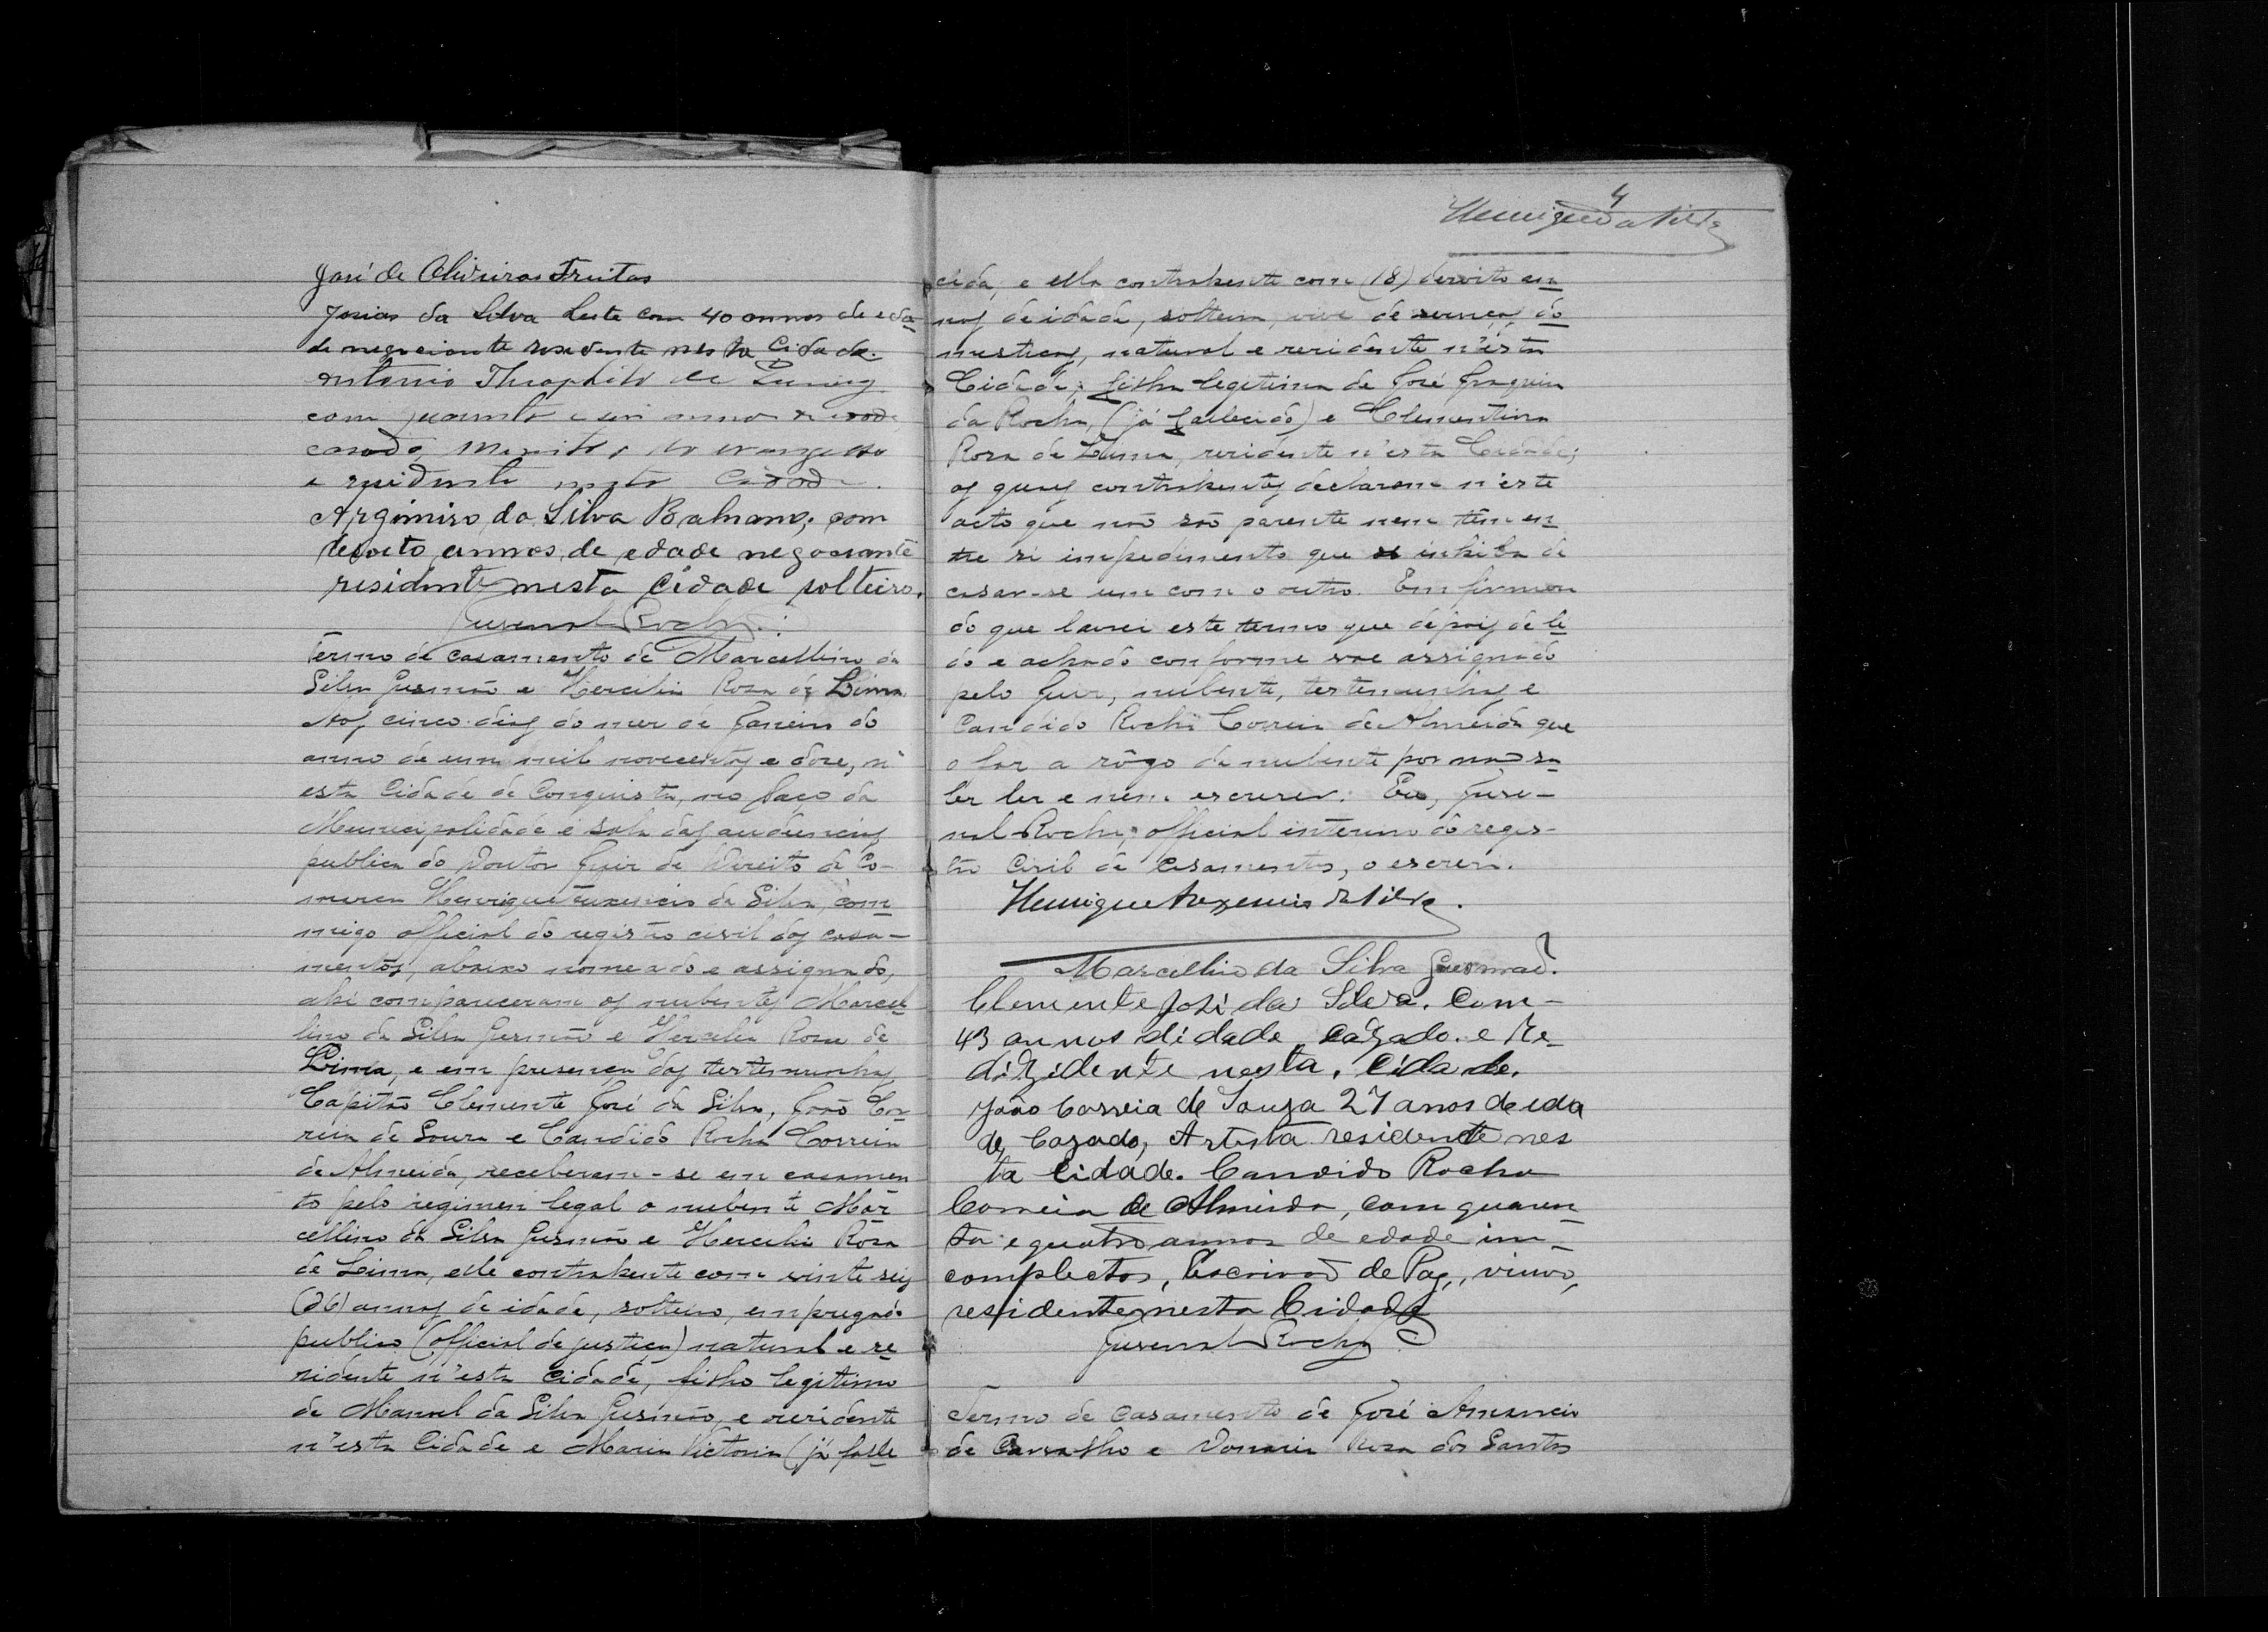 José de Oliveiras Freitas
Josias da Silva Leite com 40 annos de eda-
de negociante residente nesta Cidade.
Antonio Theophilo de
com quarenta e um annos de edade,
casado, Ministro do evangelho
e residente nesta Cidade.
Argimiro da Silva Bahiano, com
desoito annos, de edade negociante
residente nesta Cidade solteiro.
Juvenal Rocha
Termo de casamento de Marcellino da
Silva Gusmão e Hercilia Rosa de Lima.
Aos cinco dias do mez de Janeiro do
anno de um mil novecentos e doze, n'
esta Cidade de Conquista, no Paço da
Municipalidade e sala das audiencias
publica do Doutor Juiz de Direito da Co-
marca Henrique Auxencio da Silva, com-
migo official do registro civil dos casa-
mentos, abaixo nomeado e assignado,
ahi compareceram os nubentes Marcel-
lino da Silva Gusmão e Hercilia Rosa de
Lima, e em presença das testemunhas
Capitão Clemente José da Silva, João Cor-
reia de Souza e Candido Rocha Correia
de Almeida, receberam-se em casamen
to pelo regimen legal o nubente Mar-
cellino da Silva Gusmão e Hercilia Rosa
de Lima, elle contrahente com vinte seis
(26) annos de idade, solteiro, empregado
publico (official de justiça) natural e re-
sidente n'esta Cidade, filho legitimo
de Manoel da Silva Gusmão, e residente
n'esta Cidade e Maria Victoria (já falle
4
Henrique da Silva
cida, e ella contrahente com (18) desoito an-
nos de idade, solteira, vive de serviços do-
mesticos, natural e residente n'esta
Cidade; filha legitima de José Joaquim
da Rocha, (já fallecido) e Clementina
Rosa de Lima, residente n'esta Cidade;
os quaes contrahentes declararam n'este
acto que não são parente nem têm en-
tre si impedimento que os inhiba de
casar-se um com o outro. Em firmeza
do que lavrei este termo que depois de li-
do e achado conforme vae assignado
pelo Juiz, nubente, testemunhas e
Candido Rocha Correia de Almeida que
o faz a rôgo da nubente por não sa-
ber ler e nem escrever. Eu, Juve-
nal Rocha, official interino do regis-
tro Civil de Casamentos, o escrevi.
Henrique Auxencio da Silva.
Marcellino da Silva Gusmão.
Clemente José da Silva. Com-
43 annos didade, Cazado. e Re-
dizidente nesta. Cidade.
João Correia de Souza 27 anos de eda
de, Cazado, Artista residente nes
ta Cidade. Candido Rocha
Correia de Almeida, com quaren-
ta e quatro annos de edade in-
complectos, Escrivão de Paz, viuvo,
residente nesta Cidade
Juvenal Rocha
Termo de casamento de José Amancio
de Carvalho e Donaria Rosa dos Santos